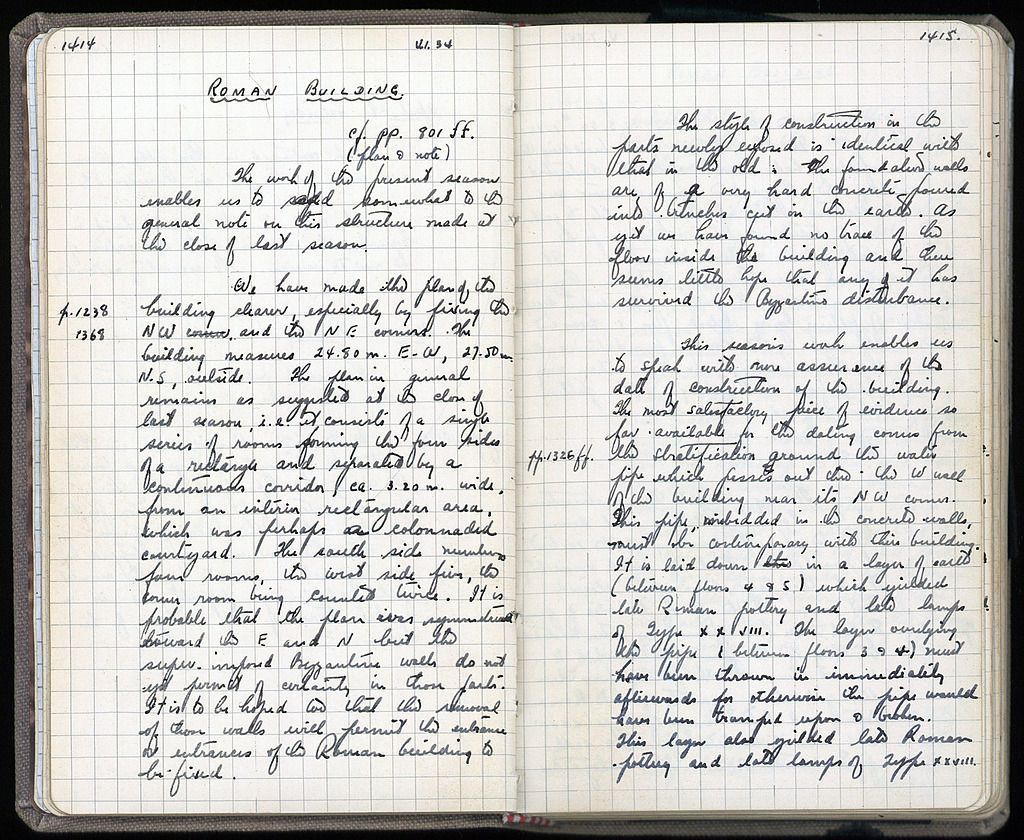 1414
VI. 34
ROMAN BUILDING.
cf. pp. 801 ff.
(plan & note)
The work of the present season
enables us to add somewhat to the
general note on this structure made at
the close of last season.
We have made the plan of the
p. 1238
building clearer, especially by fixing the
1368
NW corner, and the NE corners. The
building measures 24.80 m. E-W, 27.50 m
N.S, outside. The plan in general
remains as suggested at the close of
last season, i.e. it consists of a single
series of rooms forming the four sides
of a rectangle and separated by a
continuous corridor, ca. 3.20 m. wide,
from an interior rectangular area,
which was perhaps a colonnaded
courtyard. The south side numbers
four rooms, the west side five, the
corner room being counted twice. It is
probable that the plan was symmetrical
toward the E and N but the
super-imposed Byzantine walls do not
yet permit of certainty in those parts.
It is to be hoped that the removal
of those walls will permit the entrance
or entrances of the Roman building to
be fixed.
1415.
The style of construction in the
parts newly exposed is identical with
that in the old: the foundation walls
are of a very hard concrete poured
into trenches cut in the earth. As
yet we have found no trace of the
floor inside the building and there
seems little hope that any of it has
survived the Byzantine disturbance.
This season's work enables us
to speak with more assurance of the
date of construction of the building.
The most satisfactory piece of evidence so
far available for the dating comes from
pp. 1326 ff.
the stratification around the water
pipe which passes out thro' the W wall
of the building near its NW corner.
This pipe, imbedded in the concrete walls,
must be contemporary with the building.
It is laid down in a layer of earth
(between floors 4 & 5) which yielded
late Roman pottery and late lamps
of Type XXVIII. The layer overlying
the pipe (between floors 3 & 4) must
have been thrown in immediately
afterwards for otherwise the pipe would
have been tramped upon & broken.
This layer also yielded late Roman
pottery and late lamps of Type XXVIII.